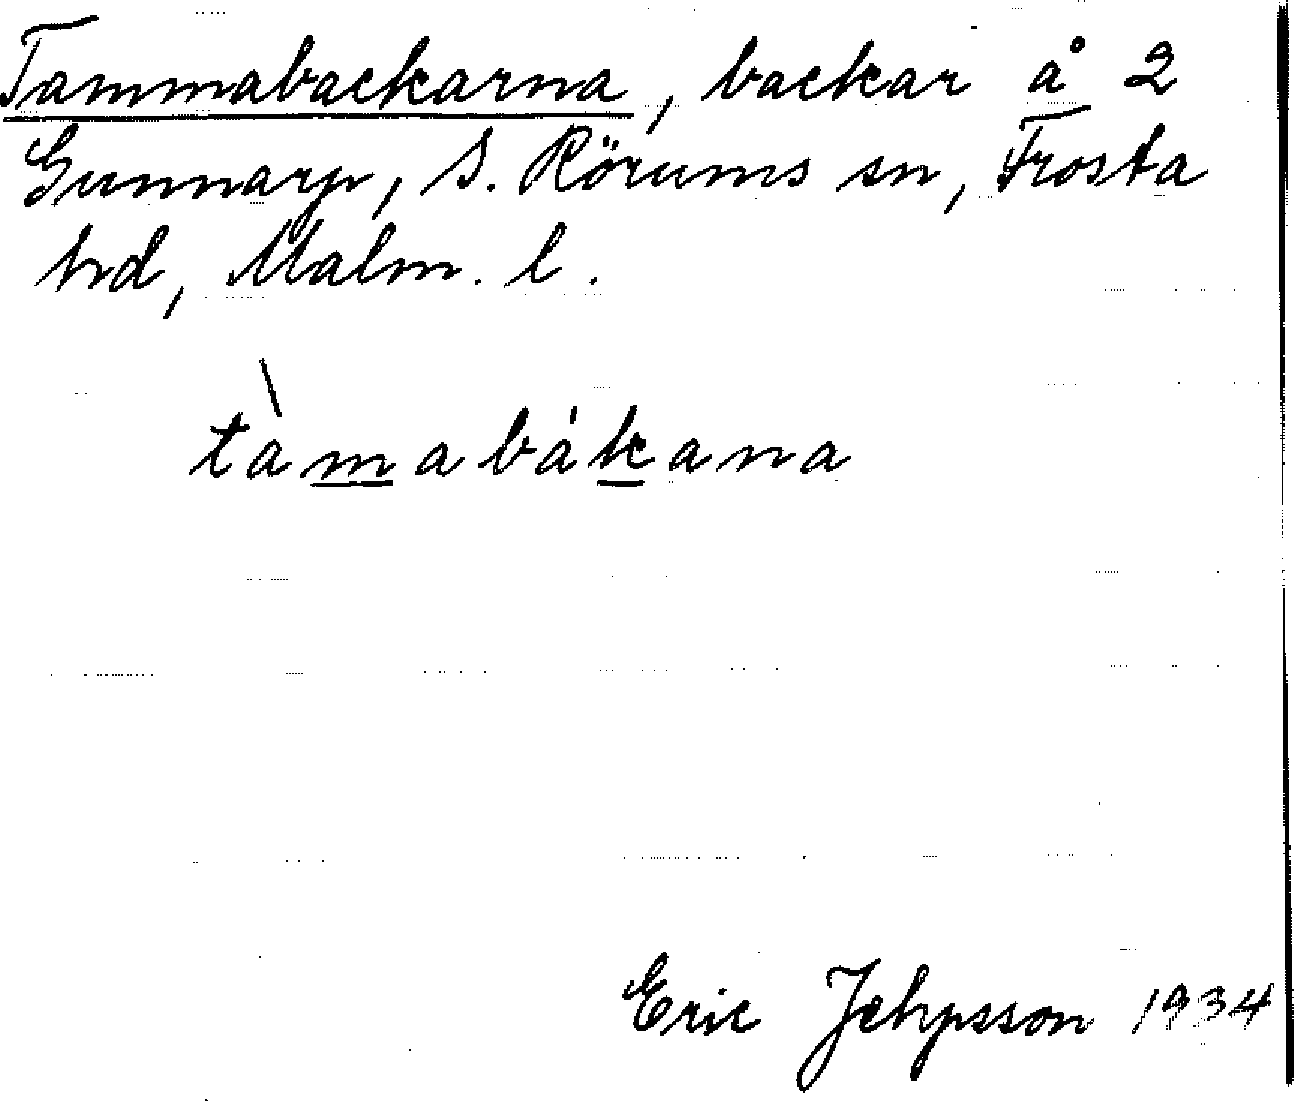 Tammabackarna, backar å 2
Gunnarp, S. Rörums sn, Frosta
hd, Malm. l.
tàmabákana
Eric Jehpsson 1934